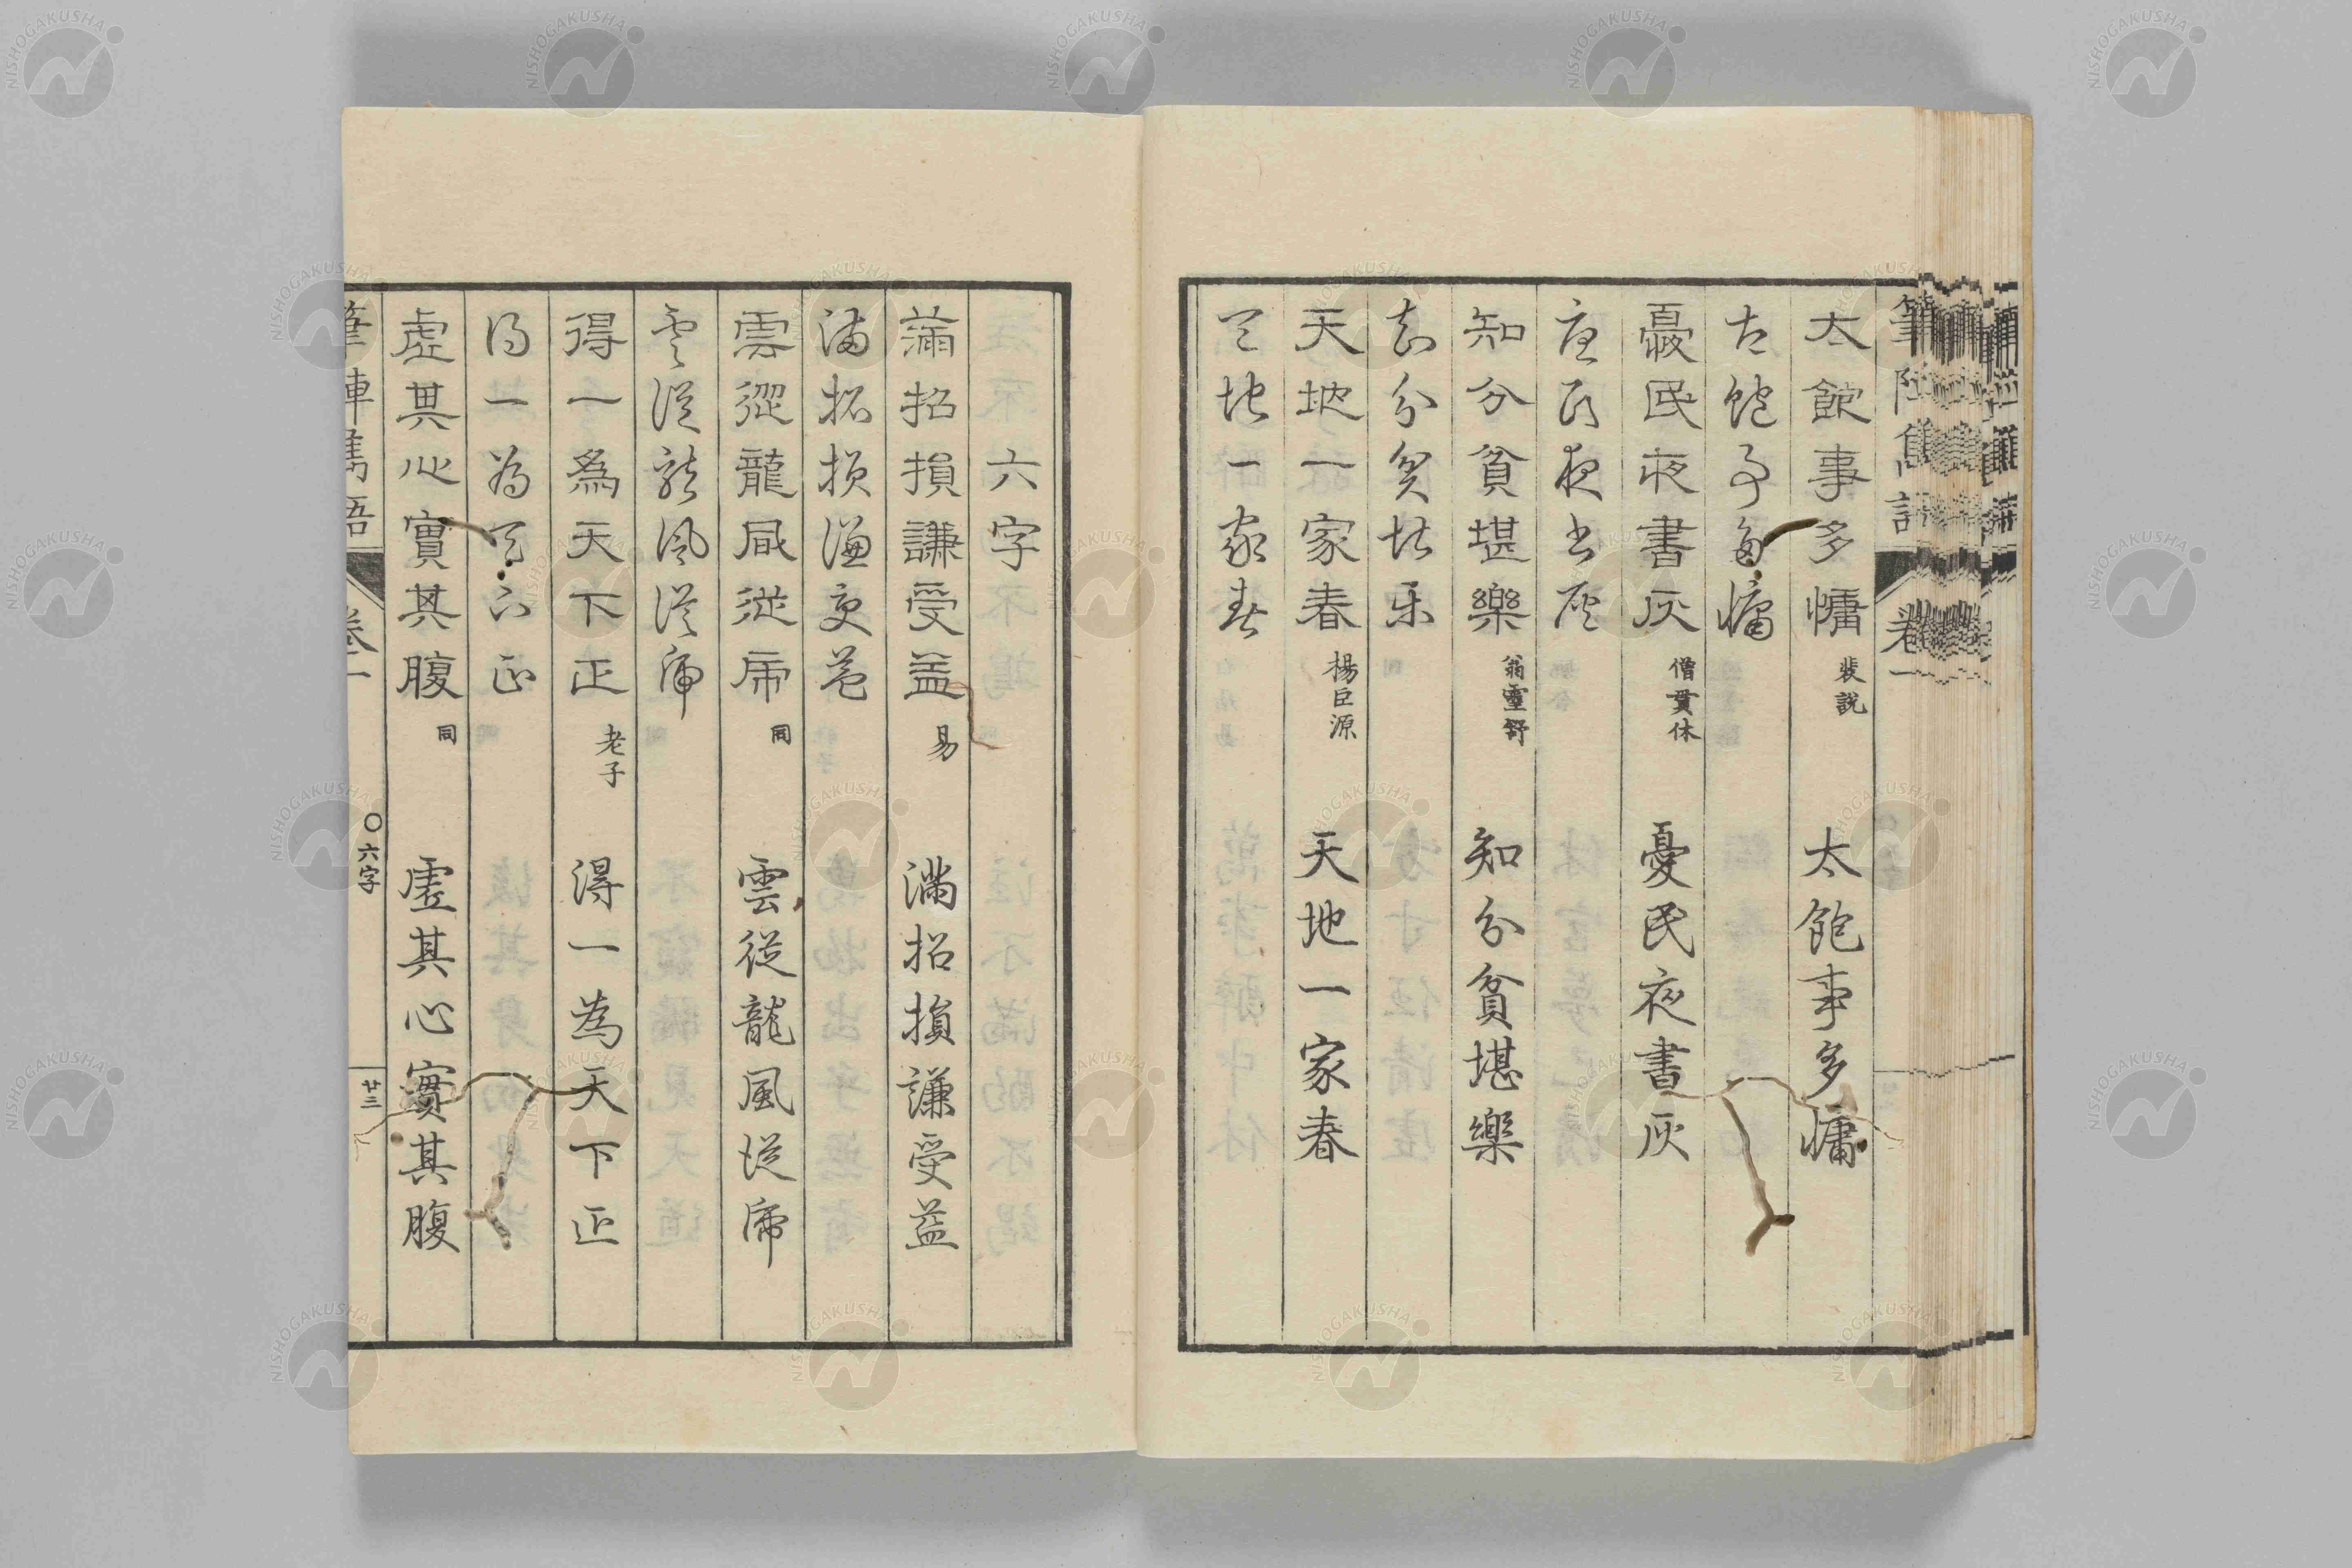 太飽事多慵 裴説 太飽事多慵
太飽事多慵
憂民夜書灰 僧貫休 憂民夜書灰
憂民夜書灰
知分貧堪樂 翁靈舒 知分貧堪樂
知分貧堪樂
天地一家春 楊巨源 天地一家春
天地一家春
六字
滿招損謙受益 易 滿招損謙受益
滿招損謙受益
雲從龍風從虎 同 雲從龍風從虎
雲從龍風從虎
得一為天下正 老子 得一為天下正
得一為天下正
虛其心實其腹 同 虛其心實其腹
筆陣雋語 卷一 〇六字 廿三
NISHOGAKUSHA